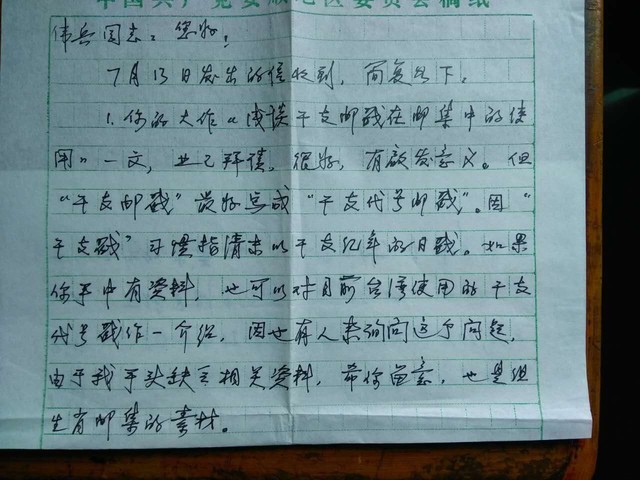 中国共产党安顺地区委员会稿纸
伟兵同志：您好！
7月13日发出的信收到，简复如下：
1.你的大作“浅谈干支邮戳在邮集中的使
用”一文，业已拜读，很好，有启发意义。但
“干支邮戳”最好写成“干支代号邮戳”。因“
干支戳”习惯指清末以干支纪年的日戳。如果
你手中有资料，也可以对目前台湾使用的干支
代号戳作一介绍，因也有人来询问这个问题，
由于我手头缺乏相关资料，希你留意，也是组
生肖邮集的素材。